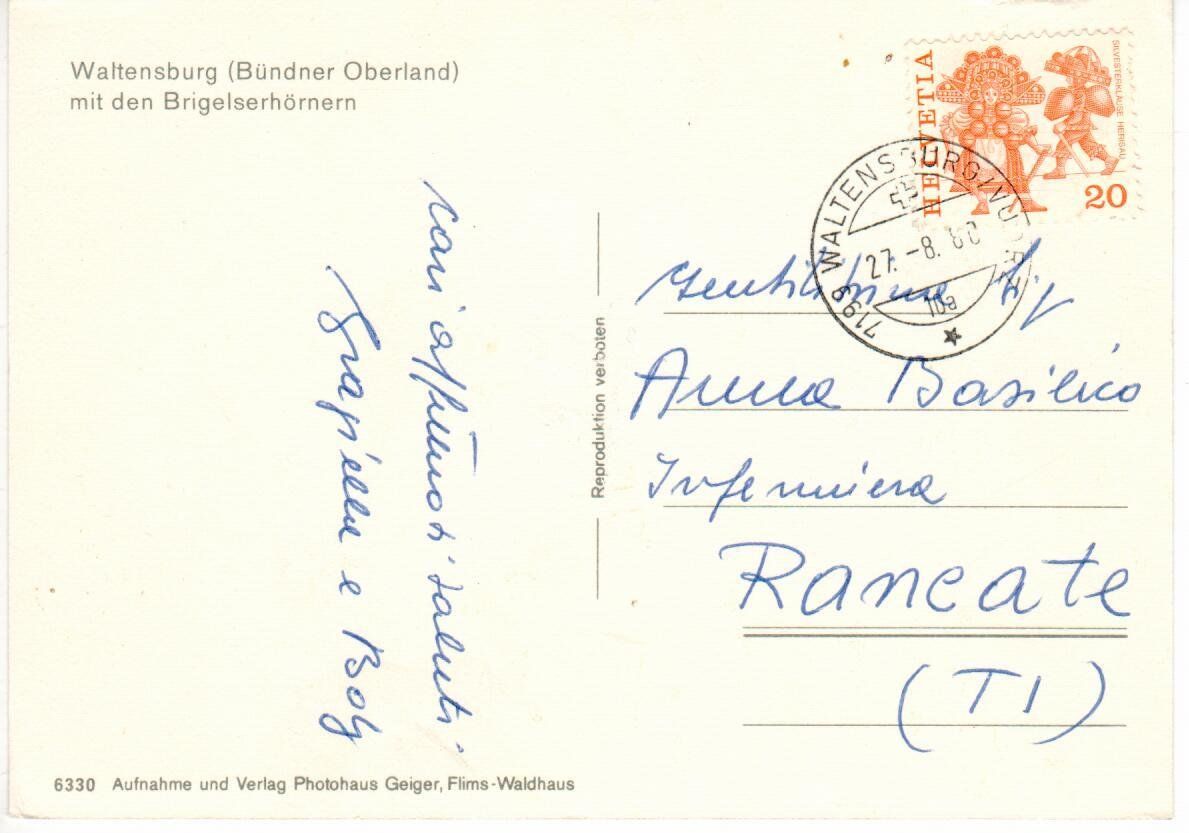 Waltensburg (Bündner Oberland)
mit den Brigelserhörnern
HELVETIA
SILVESTERKLÄUSE HERISAU
20
7199 WALTENSBURG/VUORZ
27.-8.80
10a
Cari affettuosi saluti
Graziella e
Reproduktion verboten
Gentilissime Sig
Anna Basilico
Infermiera
Rancate
(TI)
6330 Aufnahme und Verlag Photohaus Geiger, Flims-Waldhaus